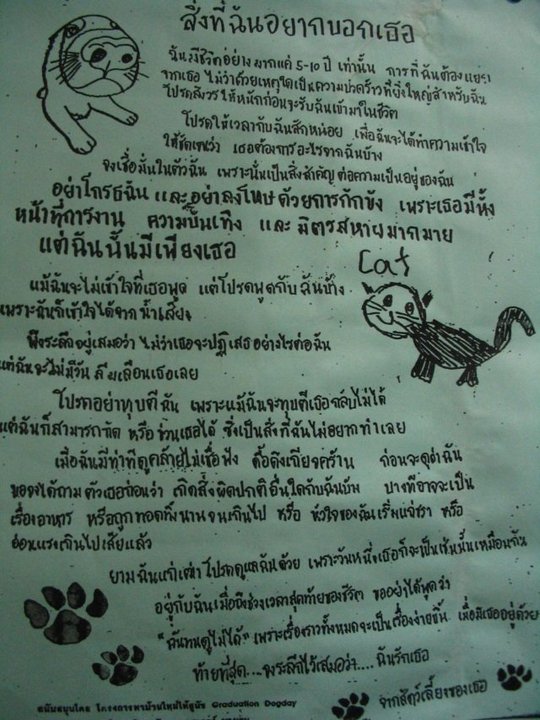 สิ่งที่ฉันอยากบอกเธอ
ฉันมีชีวิตอย่างมากแค่ 5-10 ปี เท่านั้น การที่ฉันต้องแยก
จากเธอ ไม่ว่าด้วยเหตุใดเป็นความปวดร้าวที่ยิ่งใหญ่สำหรับฉัน
โปรดสังวรให้หนักก่อนจะรับฉันเข้ามาในชีวิต
โปรดให้เวลากับฉันสักหน่อย เพื่อฉันจะได้ทำความเข้าใจ
ให้ชัดเจนว่า เธอต้องการอะไรจากฉันบ้าง
จงเชื่อมั่นในตัวฉัน เพราะนั่นเป็นสิ่งสำคัญ ต่อความเป็นอยู่ของฉัน
อย่าโกรธฉัน และอย่าลงโทษด้วยการกักขัง เพราะเธอมีทั้ง
หน้าที่การงาน ความบันเทิง และ มิตรสหายมากมาย
แต่ฉันนั้นมีเพียงเธอ
Cat
แม้ฉันจะไม่เข้าใจที่เธอพูด แต่โปรดพูดกับฉันบ้าง
เพราะฉันก็เข้าใจได้จากน้ำเสียง
พึงระลึกอยู่เสมอว่า ไม่ว่าเธอจะปฏิเสธอย่างไรต่อฉัน
แต่ฉันจะไม่มีวันลืมเลือนเธอเลย
โปรดอย่าทุบตีฉัน เพราะแม้ฉันจะทุบตีเธอกลับไม่ได้
แต่ฉันก็สามารถกัด หรือข่วนเธอได้ ซึ่งเป็นสิ่งที่ฉันไม่อยากทำเลย
เมื่อฉันมีท่าทีดูคล้ายไม่เชื่อฟัง ดื้อดึงเกียจคร้าน ก่อนจะดุด่าฉัน
ขอจงได้ถามตัวเธอก่อนว่า เกิดสิ่งผิดปกติอื่นใดกับฉันบ้าง บางทีอาจจะเป็น
เรื่องอาหาร หรือถูกทอดทิ้งนานจนเกินไป หรือ หัวใจของฉันเริ่มแก่ชรา หรือ
อ่อนแรงเกินไปเสียแล้ว
ยามฉันแก่เฒ่าโปรดดูแลฉันด้วย เพราะวันหนึ่งเธอก็จะเป็นเช่นนั้นเหมือนกัน
อยู่กับฉันเมื่อถึงช่วงเวลาสุดท้ายของชีวิต ขออย่าได้พูดว่า
"ฉันทนดูไม่ได้" เพราะเรื่องราวทั้งหมดจะเป็นเรื่องง่ายขึ้น เมื่อมีเธออยู่ด้วย
ท้ายที่สุด....จงระลึกไว้เสมอว่า....ฉันรักเธอ
จากสัตว์เลี้ยงของเธอ
สนับสนุนโดย โครงการหาบ้านใหม่ให้ตูบ Graduation Dogday